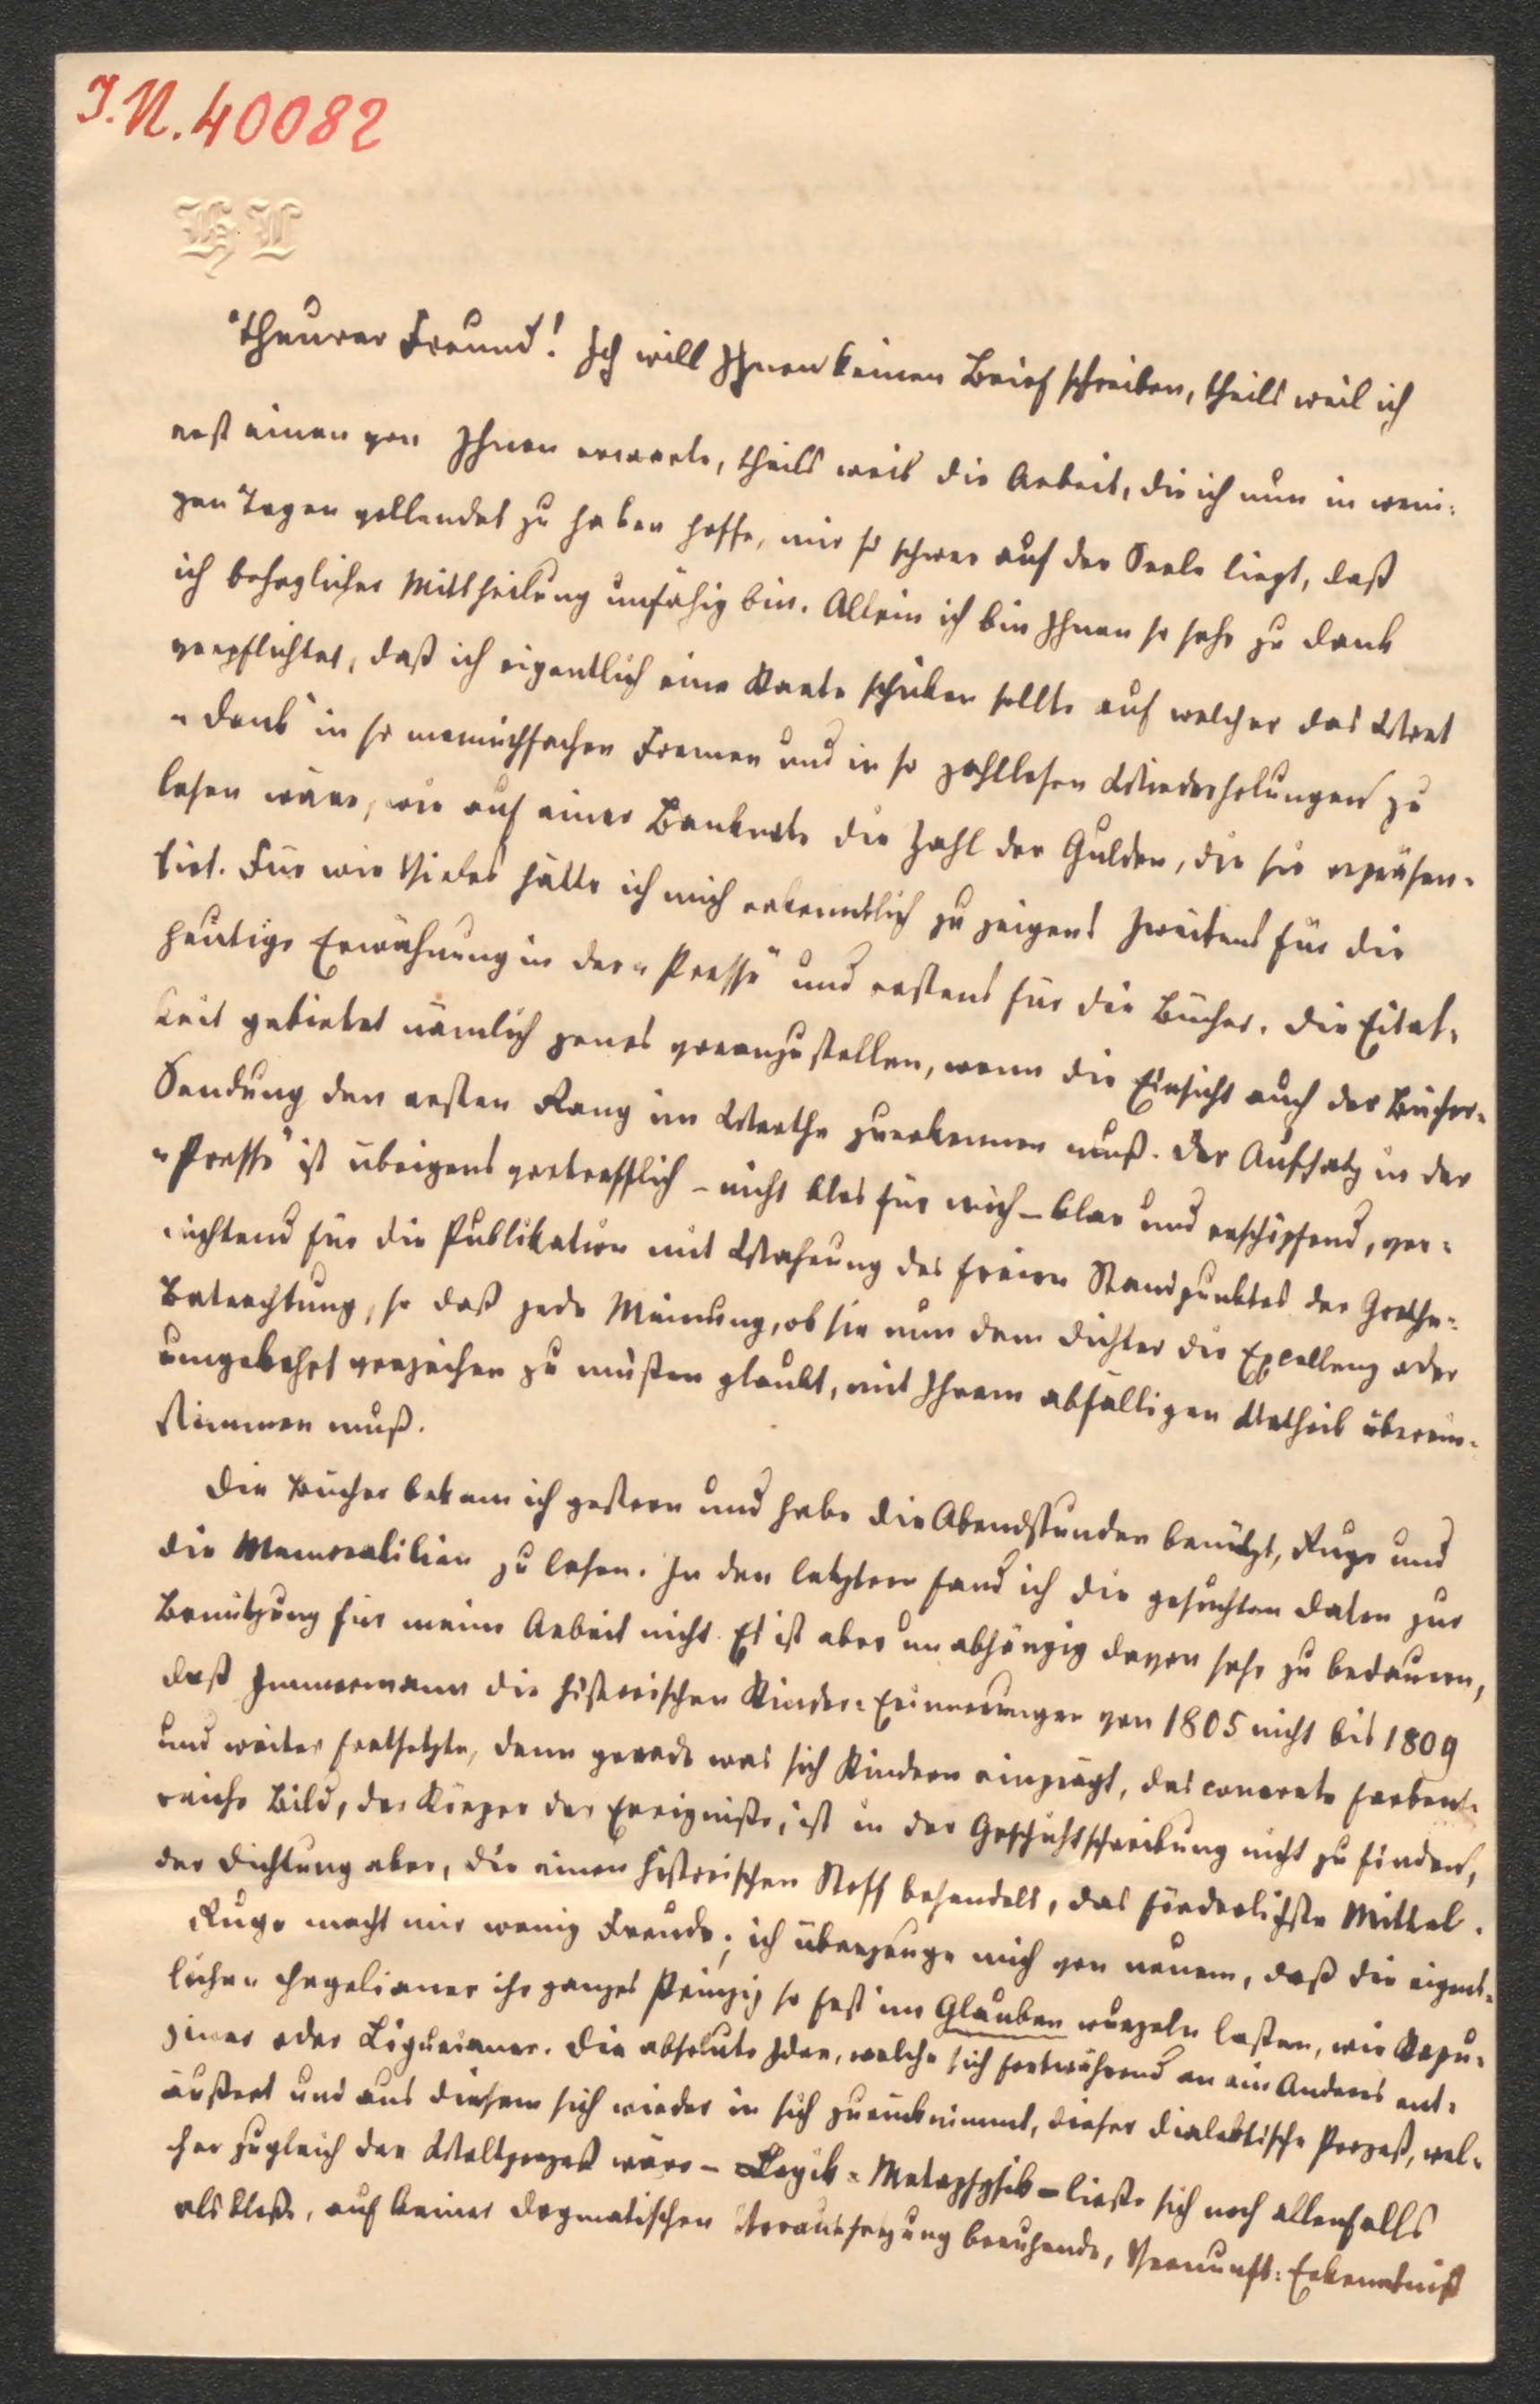 I.N. 40082
HL
Theurer Freund! Ich will Ihnen keinen Brief schreiben, theils weil ich
erst einen von Ihnen erwarte, theils weil die Arbeit, die ich nun in weni-
gen Tagen vollendet zu haben hoffe, mir so schwer auf der Seele liegt, daß
ich behaglicher Mittheilung unfähig bin. Allein ich bin Ihnen so sehr zu Dank
verpflichtet, daß ich eigentlich eine Karte schicken sollte auf welcher das Wort
„Dank“ in so mannichfachen Formen und in so zahllosen Wiederholungen zu
lesen wäre, wie auf einer Banknote die Zahl der Gulden, die sie repräsen-
tirt. Für wie Vieles hätte ich mich erkenntlich zu zeigen! Zweitens für die
heutige Erwähnung in der „Presse“ und erstens für die Bücher. Die Eitel-
keit gebietet nämlich jenes voranzustellen, wenn die Einsicht auch der Bücher-
Sendung den ersten Rang im Werthe zuerkennen muß. Der Aufsatz in der
„Presse“ ist übrigens vortrefflich – nicht blos für mich – klar und erschöpfend, ver-
nichtend für die Publikation mit Wahrung des freien Standpunktes der Goethe-
Betrachtung, so daß jede Meinung, ob sie nun dem Dichter die Excellenz oder
umgekehrt verzeihen zu müßen glaubt, mit Ihrem abfälligen Urtheil überein-
stimmen muß.
Die Bücher bekam ich gestern und habe die Abendstunden benützt, Ruge und
die Memorabilien zu lesen. In den letztern fand ich die gesuchten Daten zur
Benützung für meine Arbeit nicht. Es ist aber unabhängig davon sehr zu bedauern,
daß Immermann die historischen Kinder-Erinnerungen von 1805 nicht bis 1809
und weiter fortsetzte, denn gerade was sich Kindern einprägt, das concrete farben-
reiche Bild, der Körper der Ereigniße, ist in der Geschichtschreibung nicht zu finden,
der Dichtung aber, die einen historischen Stoff behandelt, das förderlichste Mittel.
Ruge macht mir wenig Freude; ich überzeuge mich von neuem, daß die eigent-
lichen Hegelianer ihr ganzes Prinzip so fest im Glauben wurzeln laßen, wie Kapu-
ziner oder Ligurianer. Die absolute Idee, welche sich fortwährend an ein Anderes ent-
äußert und aus diesem sich wieder in sich zurücknimmt, dieser dialektische Prozeß, wel-
cher zugleich der Weltprozeß wäre – Logik = Metaphysik – ließe sich noch allenfalls
als bloße, auf keiner dogmatischen Voraussetzung beruhende, Vernunft-Erkenntniß